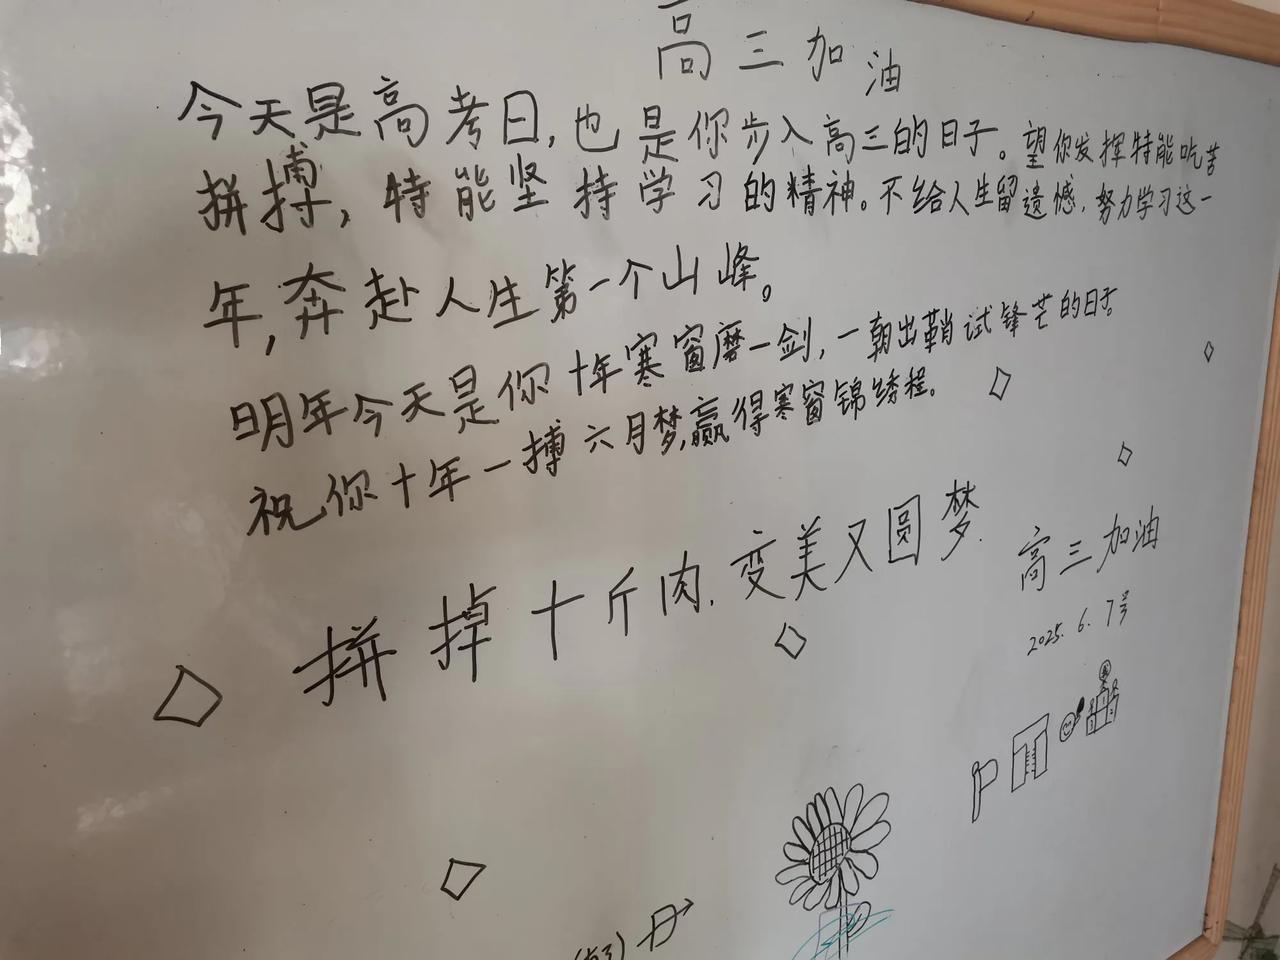 高三加油
今天是高考日,也是你步入高三的日子。望你发挥特能吃苦
拼搏,特能坚持学习的精神。不给人生留遗憾,努力学习这一
年,奔赴人生第一个山峰。
明年今天是你十年寒窗磨一剑,一朝出鞘试锋芒的日子。
祝你十年一搏六月梦,赢得寒窗锦绣程。
拼掉十斤肉,变美又圆梦.
高三加油
2025.6.7号